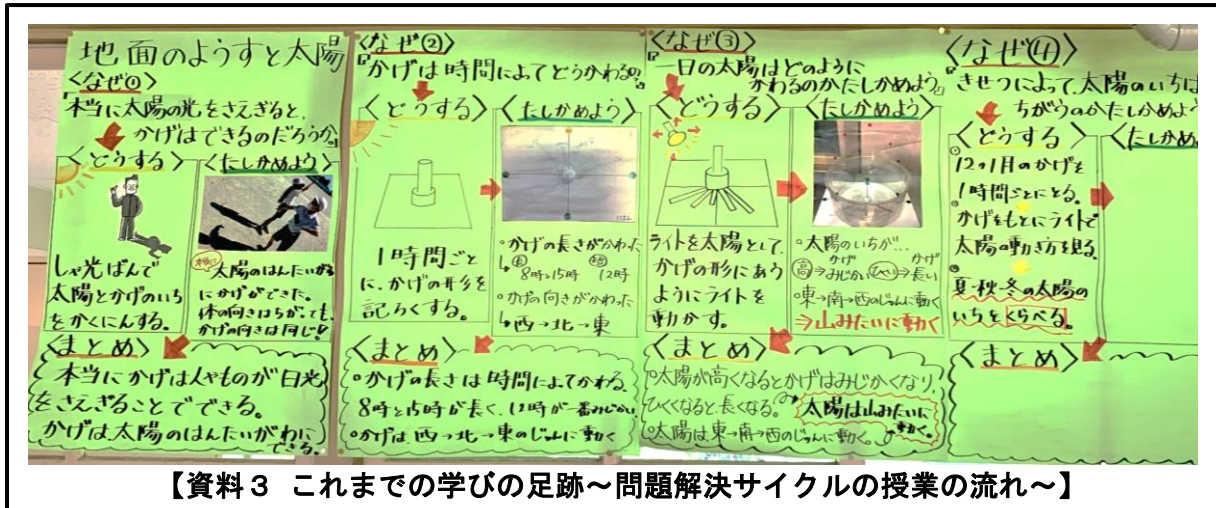 地面のようすと太陽
〈なぜ①〉
「本当に太陽の光をさえぎると、
かげはできるのだろうか。」
〈どうする〉
しゃ光ばんで
太陽とかげのいち
をかくにんする。
〈たしかめよう〉
本当に
太陽のはんたいがわ
にかげができた。
体の向きはちがっても、
かげの向きは同じ!
〈まとめ〉
本当にかげは人やものが日光
をさえぎることでできる。
かげは、太陽のはんたいがわに
できる。
〈なぜ②〉
「かげは時間によってどうかわるの?」
〈どうする〉
1時間ごと
に、かげの形を
記ろくする。
〈たしかめよう〉
・かげの長さがかわった
8時と15時
12時
・かげの向きがかわった
西→北→東
〈まとめ〉
・かげの長さは時間によてかわる。
8時と15時が長く、12時が一番みじかい
・かげは、西→北→東のじゅんに動く
〈なぜ③〉
「一日の太陽はどのように
かわるのかたしかめよう。」
〈どうする〉
ライトを太陽として、
かげの形にあう
ようにライトを
動かす。
〈たしかめよう〉
・太陽のいちが…
かげ
かげ
高→みじかい ひくい→長い
・東→南→西のじゅんに動く
⇒山みたいに動く
〈まとめ〉
・太陽が高くなるとかげはみじかくなり、
ひくくなると、長くなる。
太陽は山みたいに
動く。
・太陽は東→南→西のじゅんに動く。
〈なぜ④〉
「きせつによって、太陽のいちは
ちがうのかたしかめよう
〈どうする〉
12月のかげを
1時間ごとにとる。
かげをもとにライトで
太陽の動き方を見る。
夏・秋・冬の太陽の
いちをくらべる。
〈たしかめ
〈まとめ〉
【資料3 これまでの学びの足跡~問題解決サイクルの授業の流れ~】